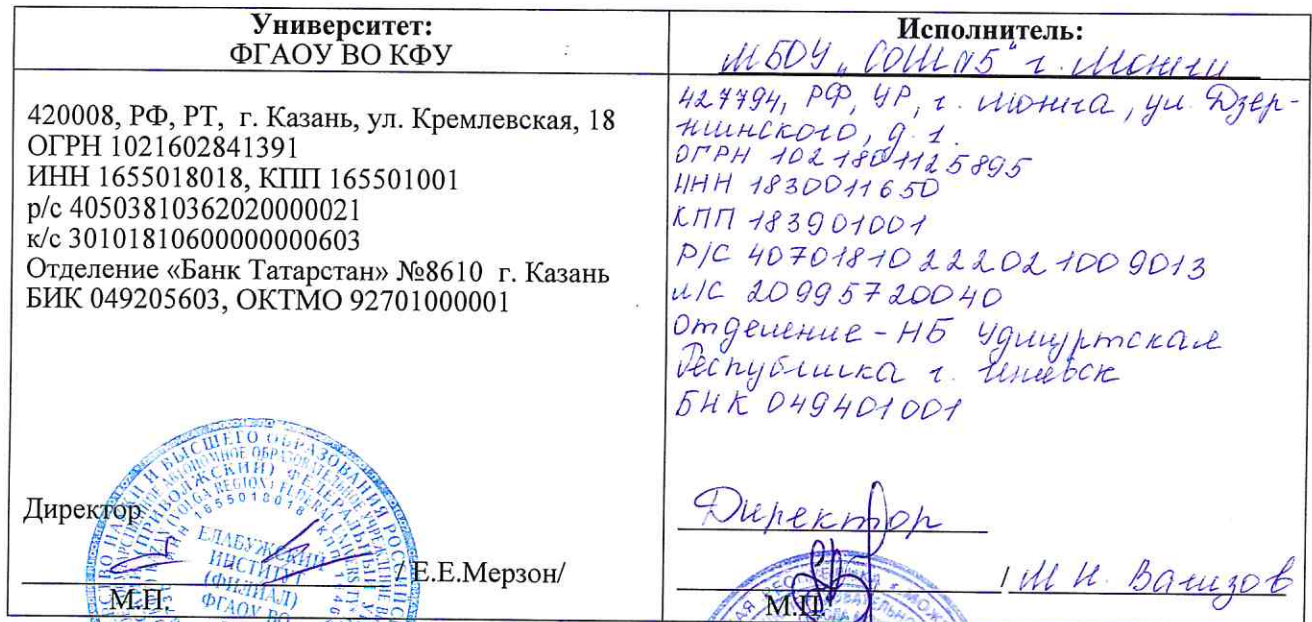 Университет:
ФГАОУ ВО КФУ
420008, РФ, РТ, г. Казань, ул. Кремлевская, 18
ОГРН 1021602841391
ИНН 1655018018, КПП 165501001
р/с 40503810362020000021
к/с 30101810600000000603
Отделение «Банк Татарстан» №8610 г. Казань
БИК 049205603, ОКТМО 92701000001
Директор
/ Е.Е.Мерзон/
М.П.
ЕЛАБУЖСКИЙ
ИНСТИТУТ
(ФИЛИАЛ)
ФГАОУ ВО
Исполнитель:
МБОУ „СОШ №5" г. Можги
427794, РФ, УР, г. Можга, ул. Дзер-
жинского, д. 1.
ОГРН 1021801125895
ИНН 1830011650
КПП 183901001
Р/С 40701810222021009013
л/С 20995720040
Отделение - НБ Удмуртская
Республика г. Ижевск
БИК 049401001
Директор
/ М Н. Вализов
М.П.